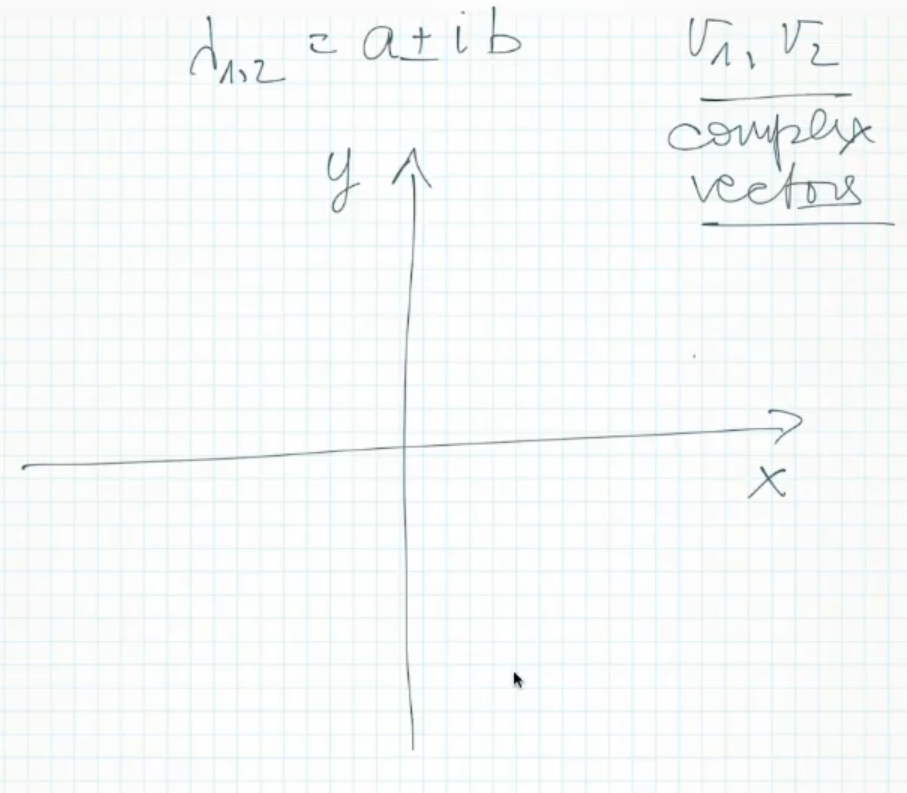 λ₁,₂ = a ± i b
v₁, v₂
complex
vectors
y
x